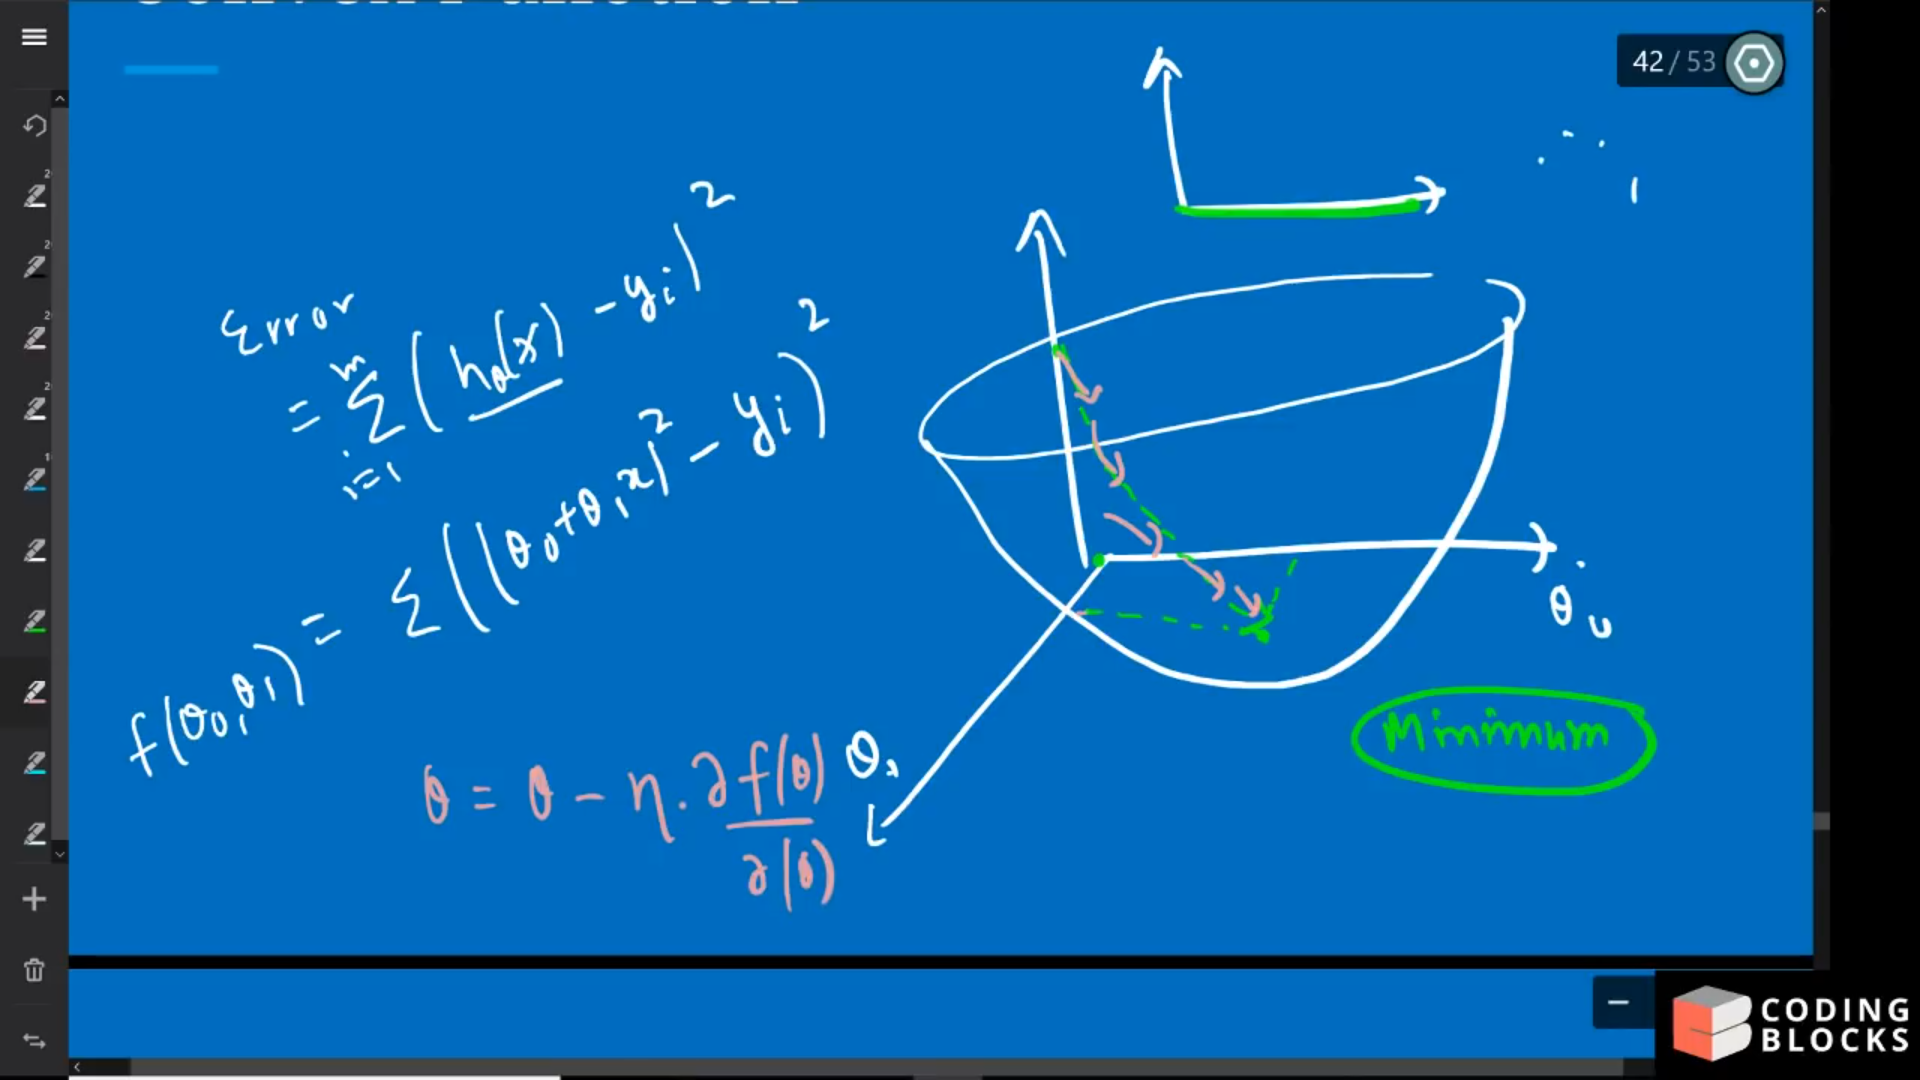 42 / 53
Error
= Σ_{i=1}^{m} (h_θ(x) - y_i)^2
f(θ_0, θ_1) = Σ((θ_0 + θ_1 x)^2 - y_i)^2
θ = θ - η. ∂f(θ) / ∂(θ)
θ_0
θ_1
Minimum
CODING
BLOCKS